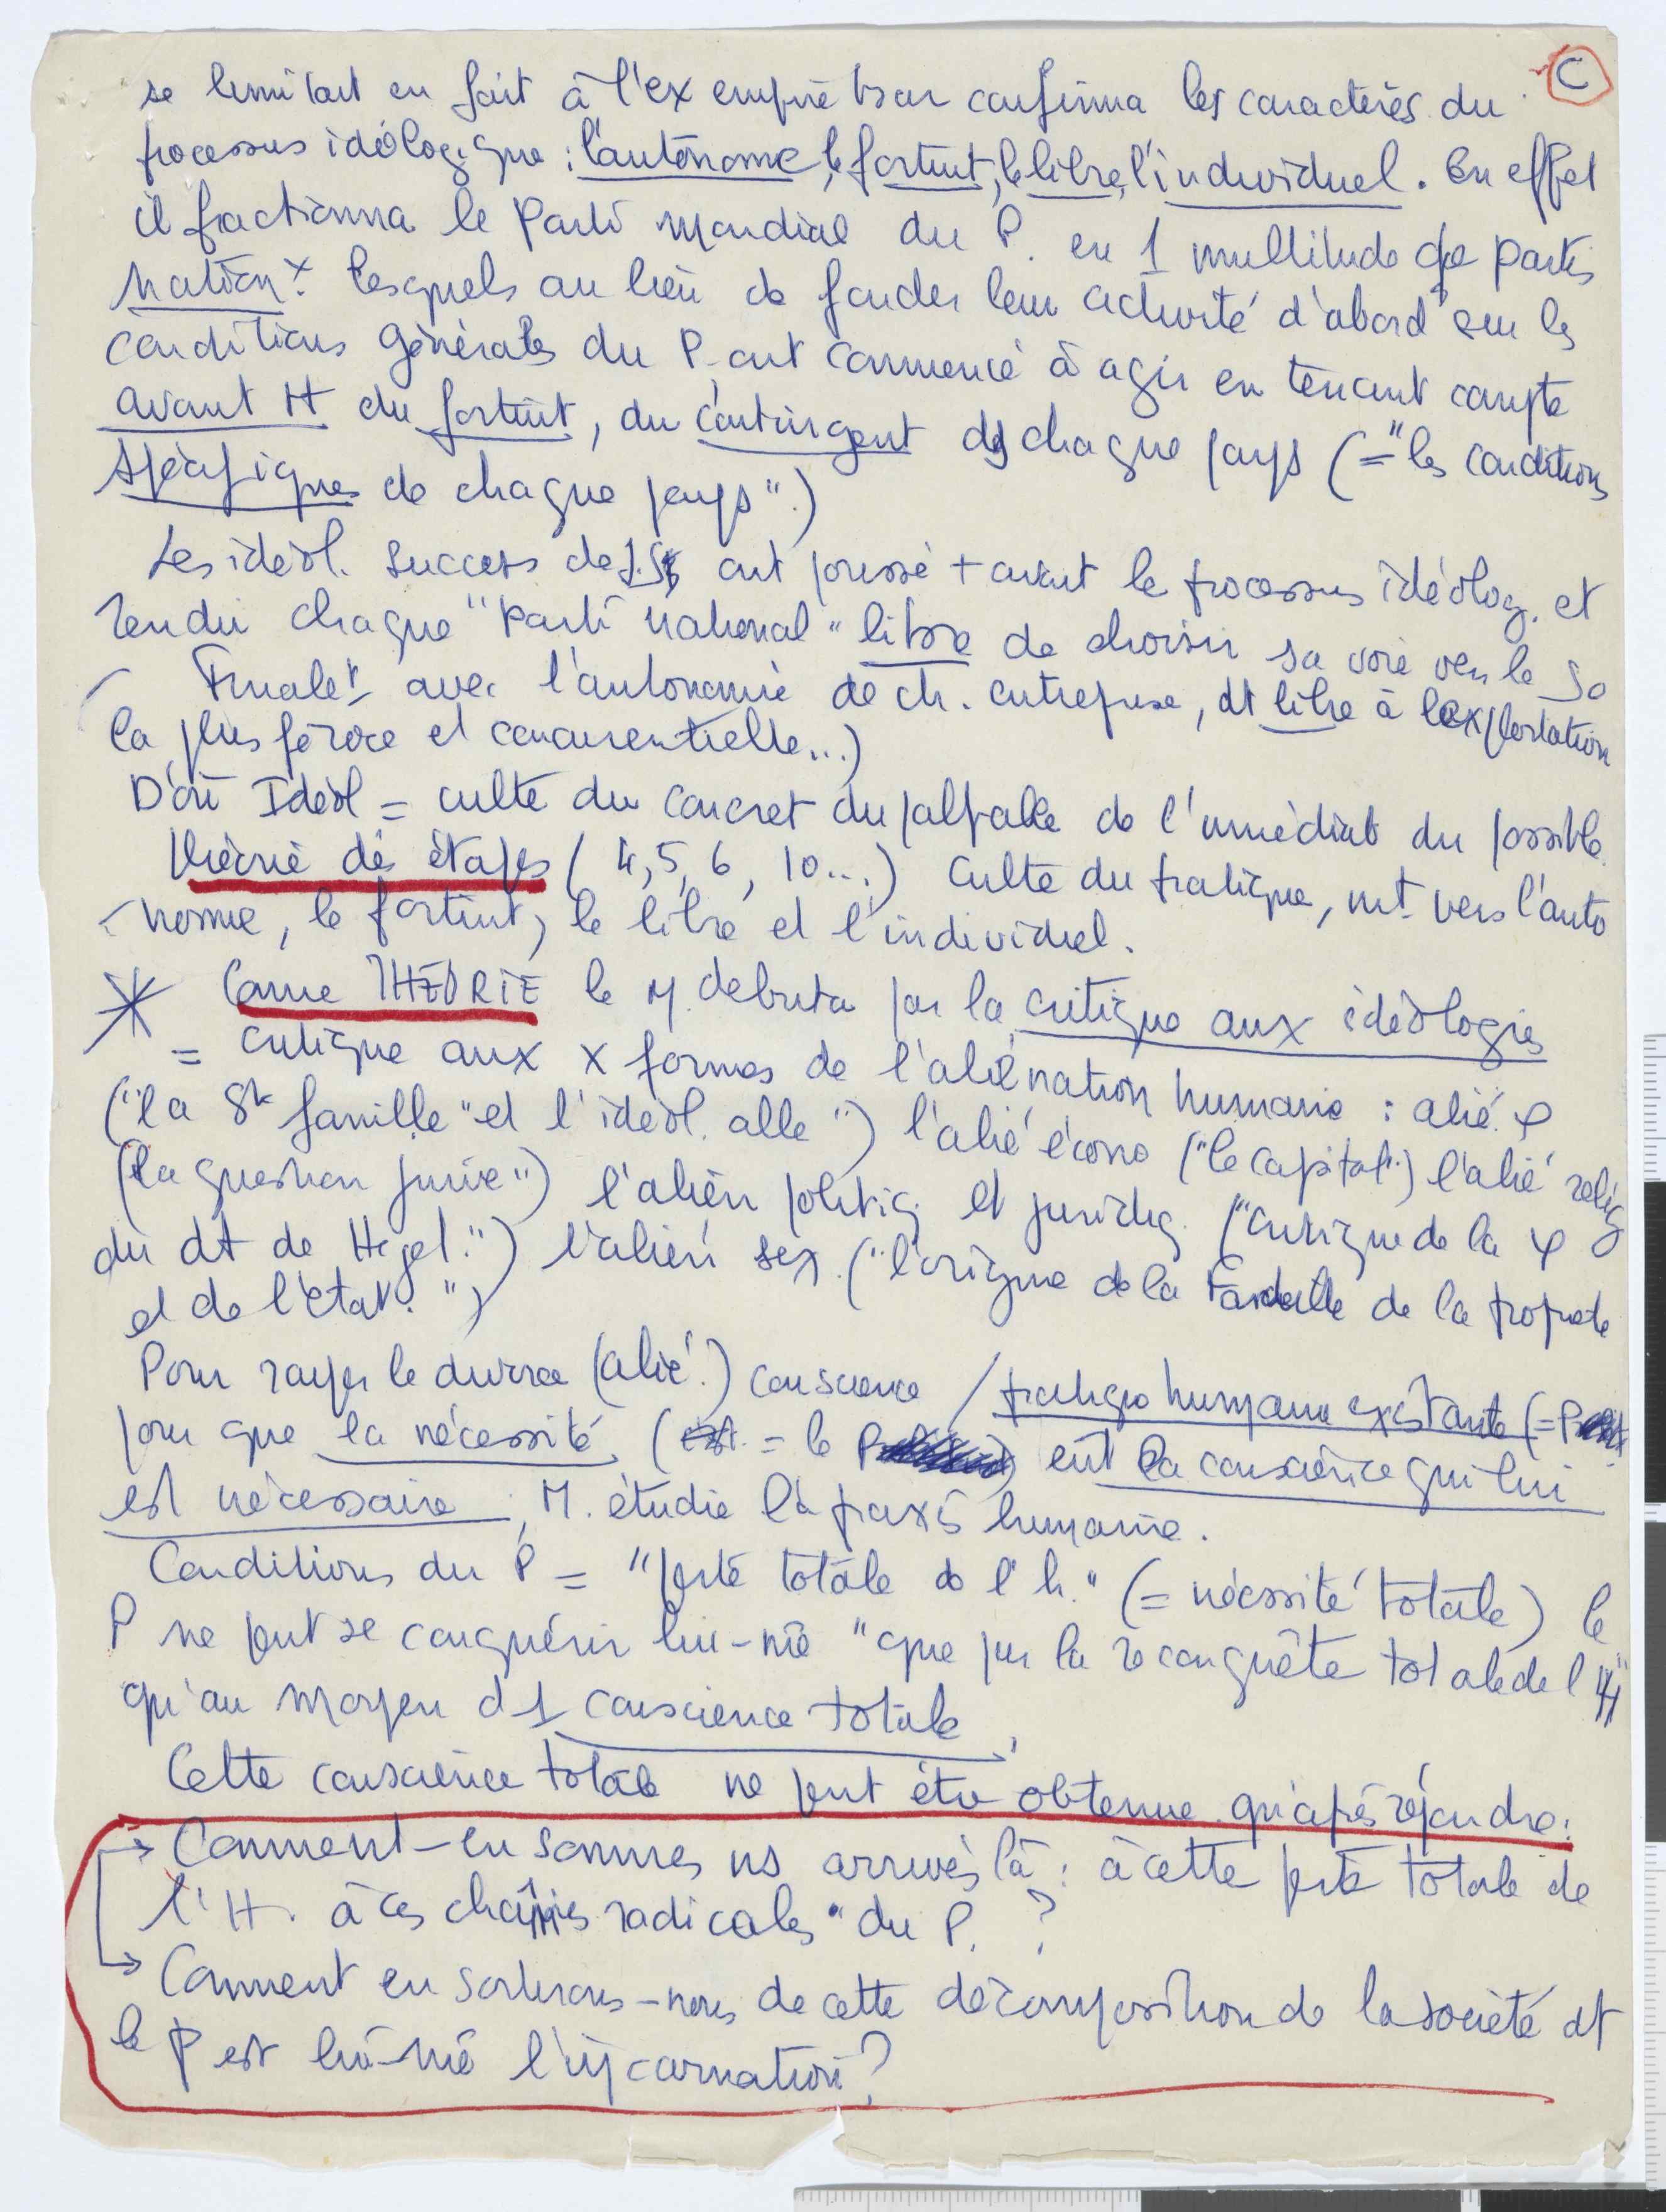 C
se limitant en fait à l'ex empire tsar confirma les caractères du
processus idéologique : l'autonome, le fortuit, le libre, l'individuel. En effet
il fractionna le Parti Mondial du P. en 1 multitude de partis
nation^x. Lesquels au lieu de fonder leur activité d'abord sur les
conditions générales du P. ont commencé à agir en tenant compte
avant tt du fortuit, du contingent de chaque pays (= "les conditions
spécifiques de chaque pays".)
Les idéol. success de J.S. ont poussé + avant le processus idéolog. et
rendu chaque "parti national" libre de choisir sa voie vers le so
Finale^t avec l'autonomie de ch. entreprise, dt libre à l'exploitation
la plus féroce et concurrentielle...)
D'où Idéol = culte du concret du palpable de l'immédiat du possible.
théorie des étapes (4, 5, 6, 10...) culte du pratique, mt vers l'auto
nome, le fortuit, le libre et l'individuel.
Comme THÉORIE le M. débuta par la critique aux idéologies
= critique aux x formes de l'aliénation humaine : alié. φ
("la Ste famille" et l'idéol. alle") l'alié écono ("le capital") l'alié relig
("la question juive") l'alién politiq et juridiq. ("critique de la φ
du dt de Hegel.") l'alién sex. ("l'origine de la Famille de la propriété
et de l'état.")
Pour rayer le divorce (alié.) conscience / pratique humaine existante (= P
pour que la nécessité (= le P) eût la conscience qui lui
est nécessaire, M. étudie la praxis humaine.
Conditions du P = "perte totale de l'h." (= nécessité totale) le
P ne peut se conquérir lui-mê "que par la reconquête totale de l'H"
qu'au moyen d 1 conscience totale.
Cette conscience totale ne peut être obtenue qu'après répondre :
→ Comment en sommes ns arrivés là : à cette perte totale de
l'H. à ces chaînes radicales" du P. ?
→ Comment en sortirons-nous de cette décomposition de la société dt
le P est lui-mê l'incarnation ?